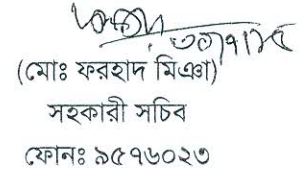 (মোঃ ফরহাদ মিঞা)
সহকারী সচিব
ফোনঃ ৯৫৭৬০২৩